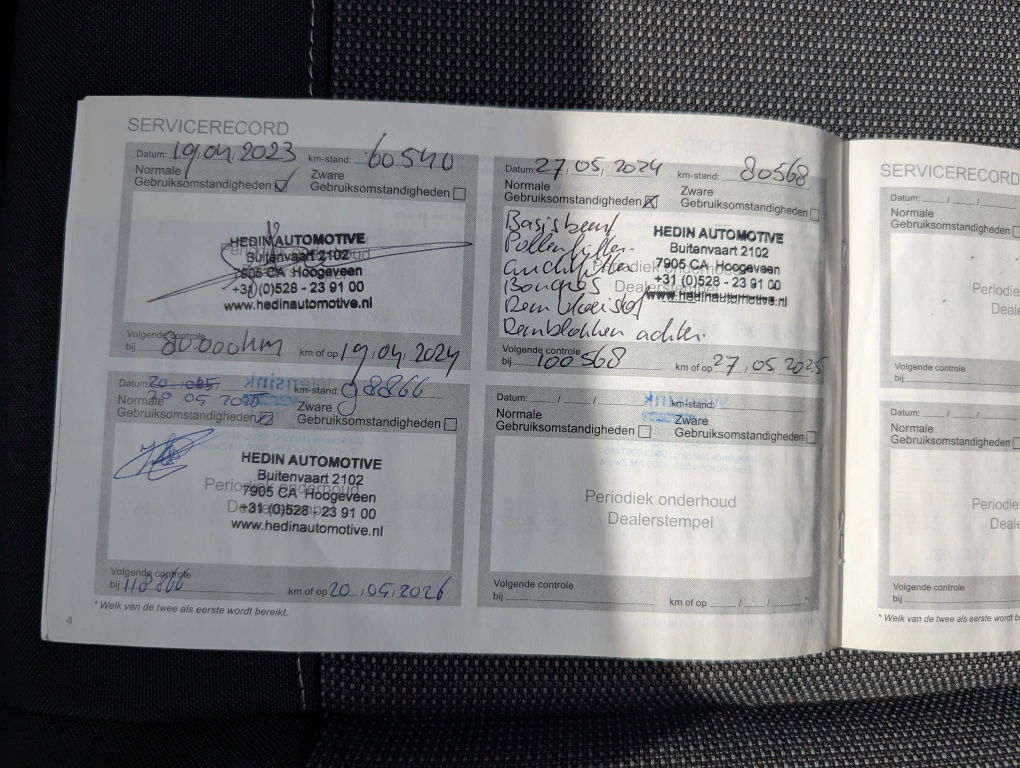 SERVICERECORD
Datum: 19,04,2023 km-stand: 60540
Normale Gebruiksomstandigheden
Zware Gebruiksomstandigheden
HEDIN AUTOMOTIVE
Buitenvaart 2102
7905 CA Hoogeveen
+31 (0)528 - 23 91 00
www.hedinautomotive.nl
Volgende controle
bij 80.000km km of op 19,04,2024
Datum: 27,05,2024 km-stand: 80568
Normale Gebruiksomstandigheden
Zware Gebruiksomstandigheden
Pollenfilter
Bougies
Remvloeistof
Remblokken achter.
HEDIN AUTOMOTIVE
Buitenvaart 2102
7905 CA Hoogeveen
+31 (0)528 - 23 91 00
www.hedinautomotive.nl
Volgende controle
bij 100568 km of op 27,05,2025
Datum: 20 05 km-stand: 98866
Normale Gebruiksomstandigheden
Zware Gebruiksomstandigheden
Periodiek onderhoud
HEDIN AUTOMOTIVE
Buitenvaart 2102
7905 CA Hoogeveen
+31 (0)528 - 23 91 00
www.hedinautomotive.nl
Volgende controle
bij 118866 km of op 20,05,2026
Datum: / / km-stand:
Normale Gebruiksomstandigheden
Zware Gebruiksomstandigheden
Periodiek onderhoud
Dealerstempel
Volgende controle
bij km of op / / *
* Welk van de twee als eerste wordt bereikt.
4
SERVICERECORD
Datum: / /
Normale
Gebruiksomstandigheden
Periodi
Deale
Volgende controle
bij
Datum: / /
Normale
Gebruiksomstandigheden
Periodi
Deale
Volgende controle
bij
* Welk van de twee als eerste wordt b